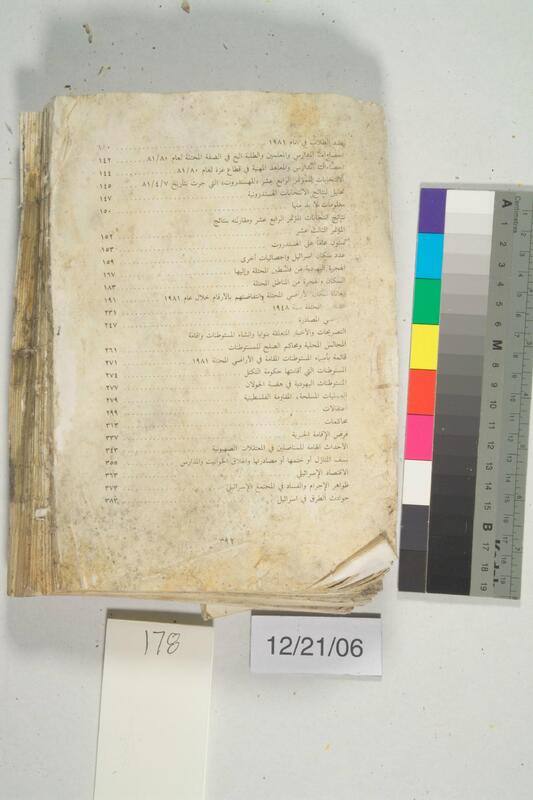 عدد الطلاب في عام ١٩٨١
احصاءات المدارس والمعلمين والطلبة الخ في الضفة المحتلة لعام ٨١/٨٠ ١٤٢
احصاءات المدارس والمعاهد المهنية في قطاع غزة لعام ٨١/٨٠ ١٤٤
الانتخابات للمؤتمر الرابع عشر «للهستدروت» التي جرت بتاريخ ٨١/٤/٧ ١٤٥
تحليل لنتائج الانتخابات الهستدروتية ١٤٧
معلومات لا بد منها ١٥٠
نتائج انتخابات المؤتمر الرابع عشر ومقارنته بنتائج
المؤتمر الثالث عشر ١٥٢
على الهستدروت ١٥٣
عدد سكان اسرائيل واحصائيات أخرى ١٥٩
الهجرة اليهودية من فلسطين المحتلة وإليها ١٦٧
السكان والهجرة من المناطق المحتلة ١٨٣
الأراضي المحتلة وانتفاضتهم بالأرقام خلال عام ١٩٨١ ١٩١
المحتلة سنة ١٩٤٨ ٢٣١
المصادرة ٢٤٧
التصريحات والأخبار المتعلقة بنوايا وانشاء المستوطنات واقامة
المجالس المحلية ومحاكم الصلح للمستوطنات ٢٦١
قائمة بأسماء المستوطنات المقامة في الأراضي المحتلة ١٩٨١ ٢٧١
المستوطنات التي أقامتها حكومة التكتل ٢٧٤
المستوطنات اليهودية في هضبة الجولان ٢٧٧
العمليات المسلحة، المقاومة الفلسطينية ٢٧٩
اعتقالات ٢٩٩
محاكمات ٣١٣
فرض الإقامة الجبرية ٣٣٧
الأحداث الهامة للمناضلين في المعتقلات الصهيونية ٣٤٣
نسف المنازل أو ختمها أو مصادرتها واغلاق الحوانيت والمدارس ٣٥٥
الاقتصاد الإسرائيلي ٣٦٣
ظواهر الإجرام والفساد في المجتمع الإسرائيلي ٣٧٣
حوادث الطرق في اسرائيل ٣٨٣
٣٩٢
178
12/21/06
Centimetres
A 1 2 3 4 5 6 M 7 8 9 10 11 12 13 14 15 B 16 17 18 19